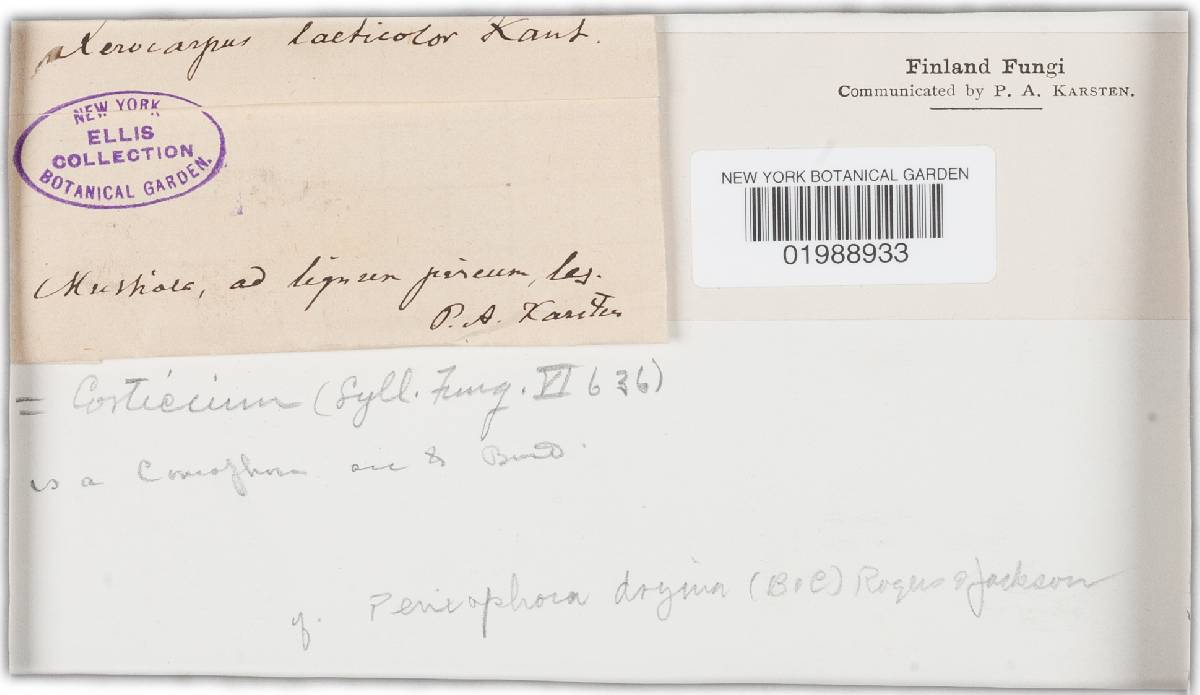 Xerocarpus laeticolor Karst.
NEW YORK
ELLIS
COLLECTION
BOTANICAL GARDEN.
Mustiala, ad lignum pineum, leg.
P. A. Karsten
Finland Fungi
Communicated by P. A. KARSTEN.
NEW YORK BOTANICAL GARDEN
01988933
= Corticium (Syll. Fung. VI 636)
is a Coniophora acc to Burt.
cf. Peniophora dryina (B&C) Rogers & Jackson